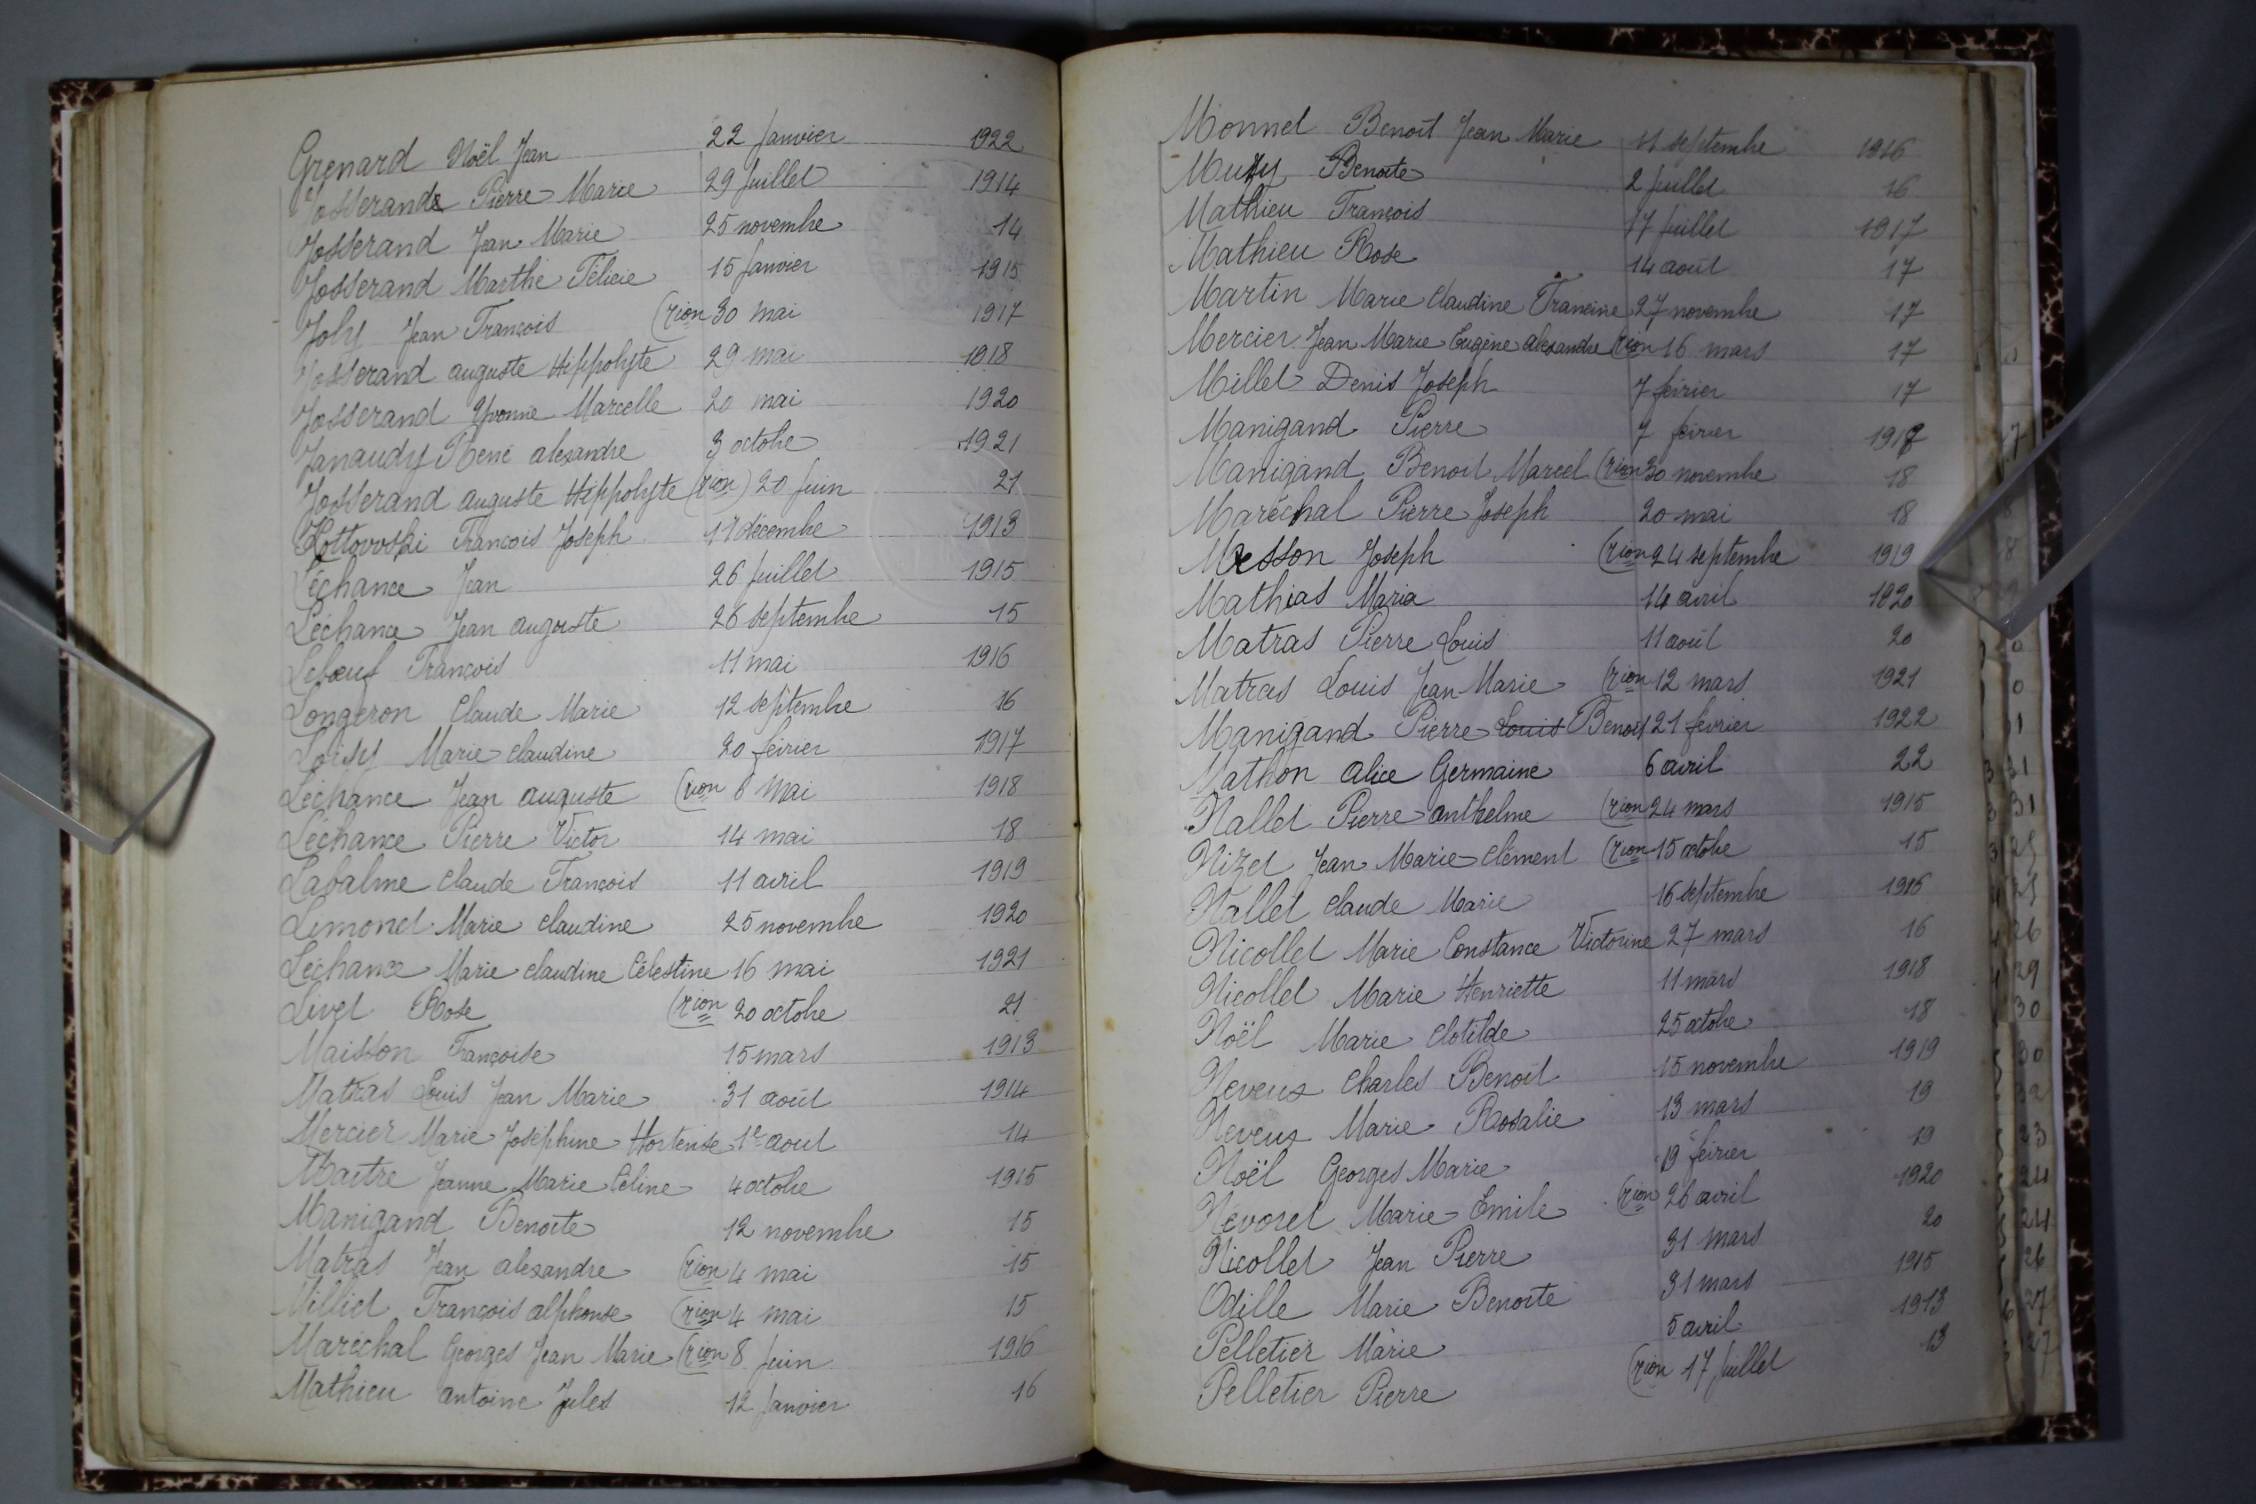 Grenard Noël Jean 22 Janvier 1922
Josserand Pierre Marie 29 Juillet 1914
Josserand Jean Marie 25 novembre 14
Josserand Marthe Félicie 15 Janvier 1915
Joly Jean François (rion 30 mai 1917
Josserand auguste Hippolyte 29 mai 1918
Josserand Yvonne Marcelle 20 mai 1920
Janaudy René alexandre 3 octobre 1921
Josserand auguste Hippolyte (rion) 20 Juin 21
Kottovoski François Joseph 17 décembre 1913
Léchance Jean 26 Juillet 1915
Léchance Jean auguste 26 septembre 15
Lebœuf François 11 mai 1916
Longeron Claude Marie 12 septembre 16
Loisy Marie claudine 20 février 1917
Léchance Jean auguste (rion 6 Mai 1918
Léchance Pierre Victor 14 mai 18
Labalme claude François 11 avril 1919
Limonet Marie claudine 25 novembre 1920
Léchance Marie claudine Célestine 16 mai 1921
Livet Rose (rion 20 octobre 21
Maisson Françoise 15 mars 1913
Matras Louis Jean Marie 31 août 1914
Mercier Marie Joséphine Hortense 1er août 14
Maitre Jeanne Marie Céline 4 octobre 1915
Manigand Benoîte 12 novembre 15
Matras Jean alexandre (rion 4 mai 15
Milliet François alphonse (rion 4 mai 15
Maréchal Georges Jean Marie (rion 8 Juin 1916
Mathieu antoine Jules 12 Janvier 16
Monnet Benoît Jean Marie 11 septembre 1916
Benoîte 2 Juillet 16
Mathieu François 17 Juillet 1917
Mathieu Rose 14 août 17
Martin Marie Claudine Francine 27 novembre 17
Mercier Jean Marie Eugène alexandre (rion 16 mars 17
Millet Denis Joseph 7 février 17
Manigand Pierre 7 février
Manigand Benoit Marcel (rion 30 novembre 18
Maréchal Pierre Joseph 20 mai 18
Messon Joseph (rion 24 septembre 1919
Mathias Maria 14 avril 1920
Matras Pierre Louis 11 août 20
Matras Louis Jean Marie (rion 12 mars 1921
Manigand Pierre Louis Benoît 21 février 1922
Mathon Alice Germaine 6 avril 22
Nallet Pierre anthelme (rion 24 mars 1915
Nizet Jean Marie Clément (rion 15 octobre 15
Nallet claude Marie 16 septembre 1916
Nicollet Marie Constance Victorine 27 mars 16
Nicollet Marie Henriette 11 mars 1918
Noël Marie Clotilde 25 octobre 18
Neveux Charles Benoit 15 novembre 1919
Neveux Marie Rosalie 13 mars 19
Noël Georges Marie 19 février 19
Nevoret Marie Emile (rion 26 avril 1920
Nicollet Jean Pierre 31 mars 20
Odille Marie Benoite 31 mars 1915
Pelletier Marie 5 avril 1913
Pelletier Pierre (rion 17 Juillet 13